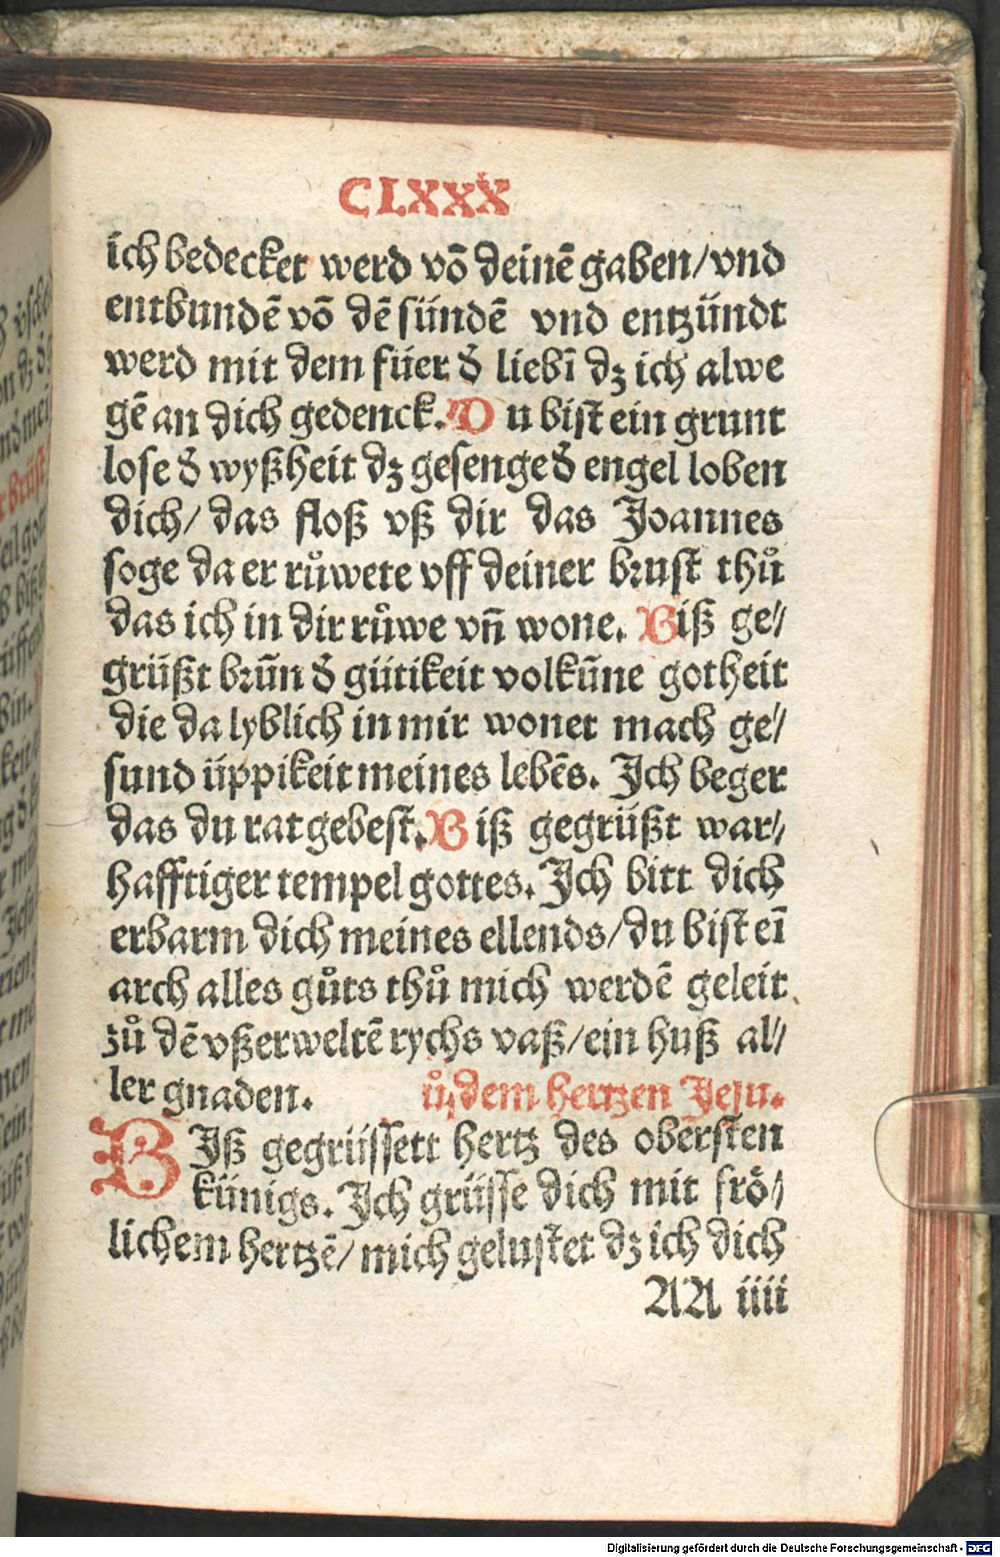 CLXXX
ich bedecket werd võ deinẽ gaben/vnd
entbundẽ võ dẽ sündẽ vnd entzündt
werd mit dem füer đ liebī dz ich alwe
gẽ an dich gedenck. Du bist ein grunt
lose đ wyßheit dz gesenge đ engel loben
dich/ das floß vß dir das Joannes
soge da er růwete vff deiner brust thů
das ich in dir růwe vñ wone. Biß ge⸗
grüßt brũn đ gütikeit volkũne gotheit
die da lyblich in mir wonet mach ge⸗
sund üppikeit meines lebẽs. Ich beger
das du rat gebest. Biß gegrüßt war⸗
hafftiger tempel gottes. Ich bitt dich
erbarm dich meines ellends/du bist eī
arch alles gůts thů mich werdẽ geleit
zů dẽ vßerweltẽ rychs vaß/ein huß al⸗
ler gnaden. ů dem hertzen Jesu.
BIß gegrüssett hertz des obersten
künigs. Ich grüsse dich mit frö⸗
lichem hertzẽ/mich gelustet dz ich dich
AA iiii
Digitalisierung gefördert durch die Deutsche Forschungsgemeinschaft - DFG